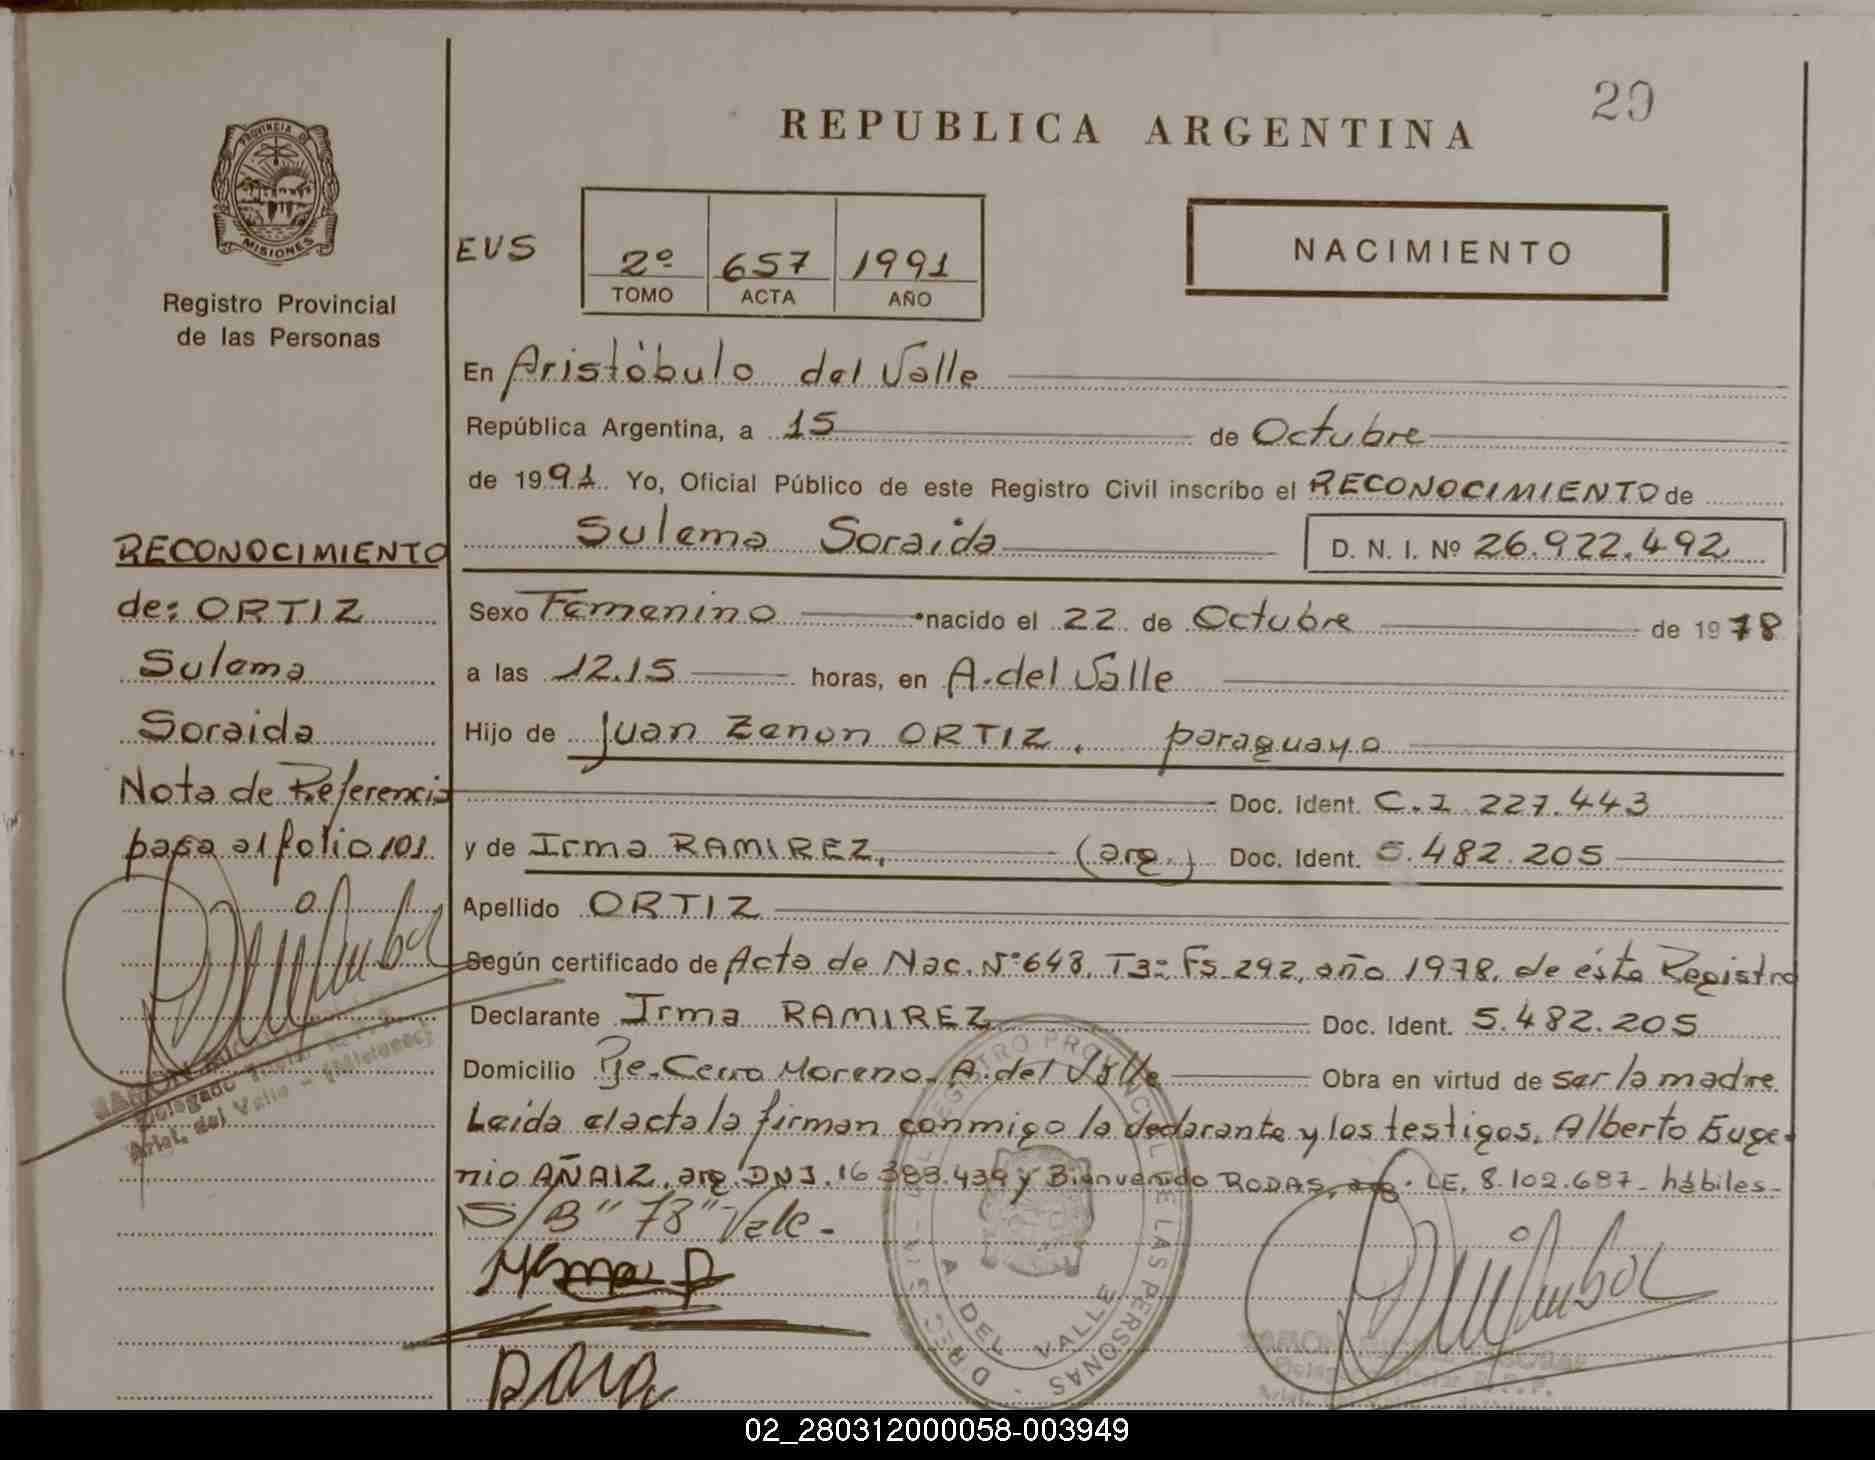 REPUBLICA ARGENTINA
20
PROVINCIA DE
MISIONES
Registro Provincial
de las Personas
EUS
2º 657 1991
TOMO ACTA AÑO
NACIMIENTO
En Aristóbulo del Valle
República Argentina, a 15 de Octubre
de 1991 Yo, Oficial Público de este Registro Civil inscribo el RECONOCIMIENTO de
Sulema Soraida D. N. I. Nº 26.922.492
RECONOCIMIENTO
de: ORTIZ
Sulema
Soraida
Nota de Referencia
pasa al folio 101
Sexo Femenino nacido el 22 de Octubre de 1978
a las 12.15 horas, en A. del Valle
Hijo de Juan Zenon ORTIZ, paraguayo
Doc. Ident. C.I. 227.443
y de Irma RAMIREZ, (arg.) Doc. Ident. 5.482.205
Apellido ORTIZ
Según certificado de Acta de Nac. Nº 648, T3º Fs 292, año 1978, de ésta Registro
Declarante Irma RAMIREZ Doc. Ident. 5.482.205
Domicilio Pje. Cerro Moreno - A. del Valle Obra en virtud de ser la madre
Leída el acta la firman conmigo la declarante y los testigos, Alberto Euge-
nio AÑAIZ, arg. DNI. 16.383.439 y Bienvenido RODAS, arg. LE. 8.102.687 - hábiles -
S/B "78" Vale -
A. DEL VALLE
02_280312000058-003949